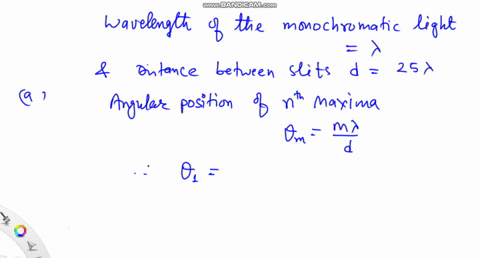 WWW.BANDICAM.COM
Wavelength of the monochromatic light
= λ
& Distance between slits d = 25λ
(a) Angular position of nth maxima
θm = mλ/d
∴ θ1 =